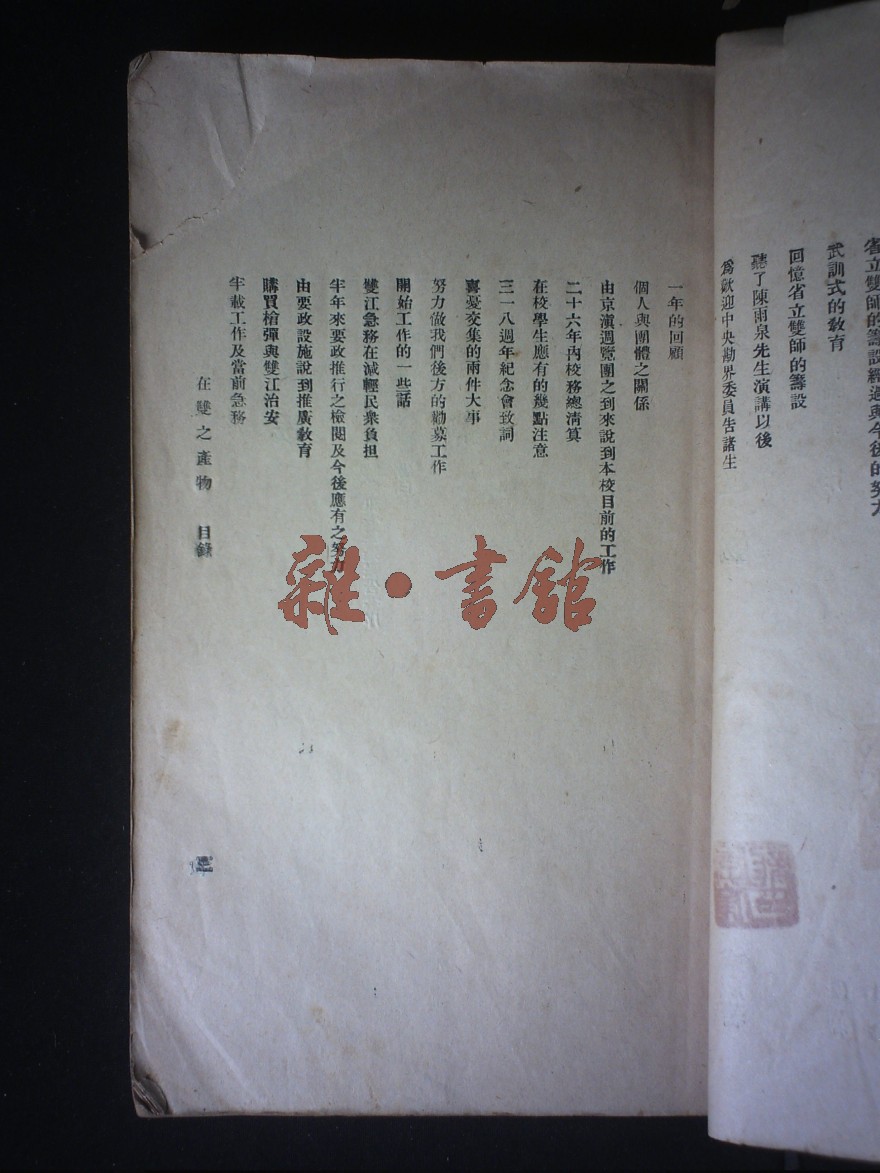 省立雙師的籌設經過與今後的努力
武訓式的教育
回憶省立雙師的籌設
聽了陳雨泉先生演講以後
爲歡迎中央勘界委員告諸生
一年的回顧
個人與團體之關係
由京滇週覽團之到來說到本校目前的工作
二十六年內校務總淸算
在校學生應有的幾點注意
三一八週年紀念會致詞
喜憂交集的兩件大事
努力做我們後方的勸募工作
開始工作的一些話
雙江急務在減輕民衆負担
半年來要政推行之檢閱及今後應有之努力
由要政設施說到推廣教育
購買槍彈與雙江治安
半載工作及當前急務
在雙之產物 目錄
雜·書館